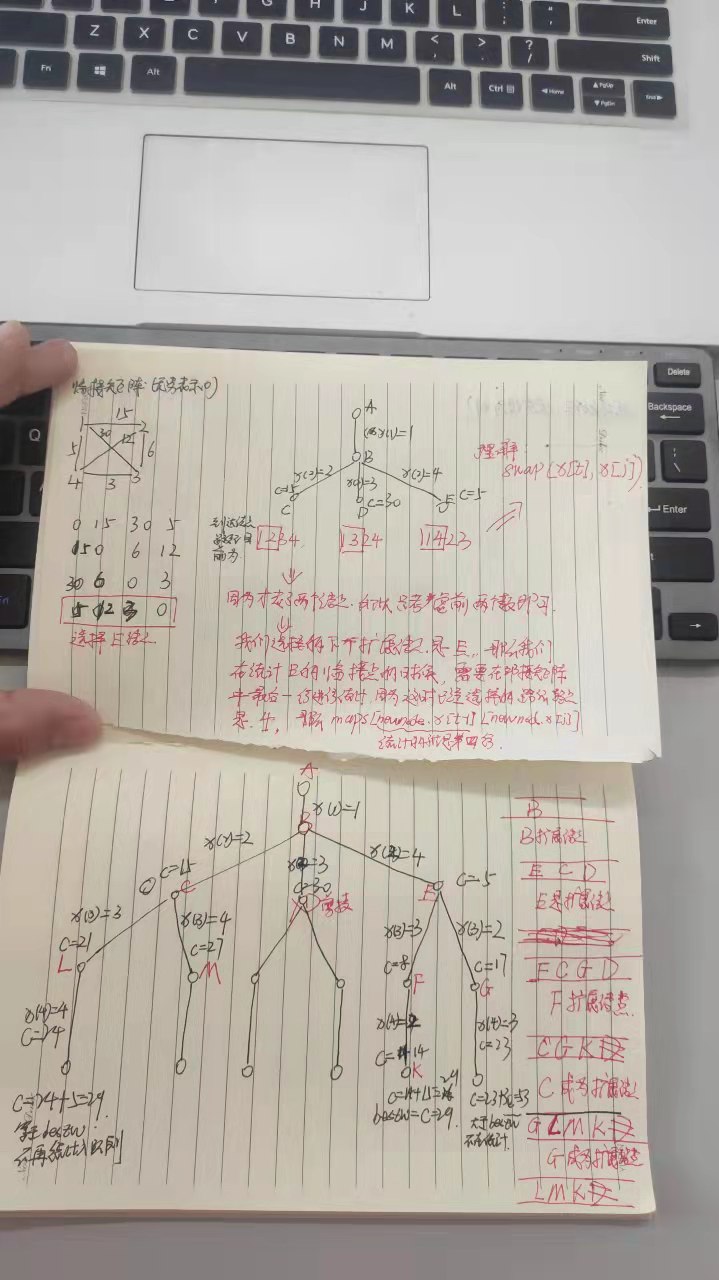 G H J K L : ; " ' Enter
Z X C V B N M < , > . ? / Shift
Fn Alt Alt Ctrl Home PgUp PgDn End
Delete
Backspace
Enter
Q
邻接矩阵(无穷表示0)
15
1 2
5 30 12 6
4 3 3
0 15 30 5
15 0 6 12
30 6 0 3
5 12 3 0
选择E结点
A
x(1)=1
B
x(2)=2 x(2)=3 x(2)=4
C=15 C=30 C=5
C D E
1234 1324 1423
理解
swap(x[t], x[j])
因为才走了两个结点,所以只考虑当前两个数即可.
我们选择的下个扩展结点是E,那么我们
在统计E的邻接点的时候,需要在邻接矩阵
中最后一行进行统计,因为这时已经选择的路径就
是14, 那么maps[newnode.x[t-1]][newnode.x[j]]
统计的就是第四行.
A
x(1)=1
B
x(2)=2 x(2)=3 x(2)=4
C=15 C C=30 剪枝 E C=5
x(3)=3 x(3)=4 x(3)=3 x(3)=2
C=21 C=27 C=8 C=17
L M F G
x(4)=4 x(4)=2 x(4)=3
C=24 C=14 C=23
K
C=24+5=29
等于bestw
不再统计入队列
C=14+15=29
bestw=C=29.
C=23+30=53
大于bestw
B
B扩展结点
E C D
E是扩展结点
F C G D
F扩展结点
C G K D
C成为扩展结点
G L M K D
G成为扩展结点
L M K D